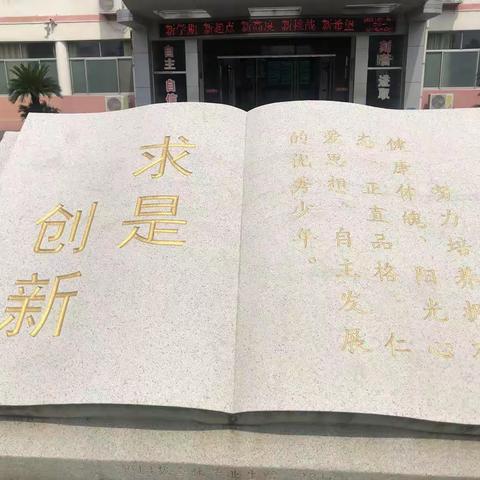 新学期 新起点 新高度 新挑战 新希望
自主 自信
求是
创新
努力培养拥
健康体魄、阳光心
态、正直品格、仁
爱思想、自主发展
的优秀少年。